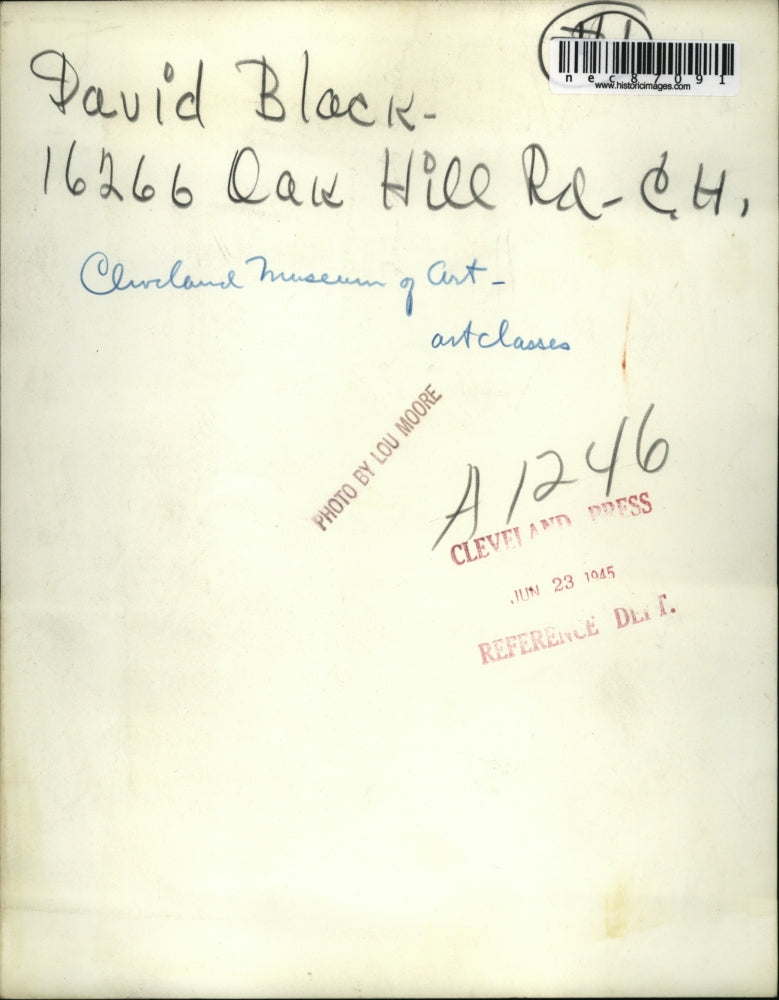 #1
nec87091
www.historicimages.com
David Black-
16266 Oak Hill Rd-C.H.
Cleveland Museum of Art-
art classes
PHOTO BY LOU MOORE
A1246
CLEVELAND PRESS
JUN 23 1945
REFERENCE DEPT.